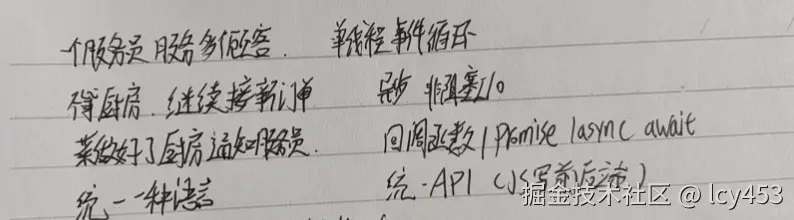 一个服务员 服务多个顾客. 单线程事件循环
得厨房. 继续接新订单 异步 非阻塞I/O
菜做好了厨房通知服务员. 回调函数/promise/async await
统一一种语言 统一API (JS写前后端)
掘金技术社区 @ lcy453